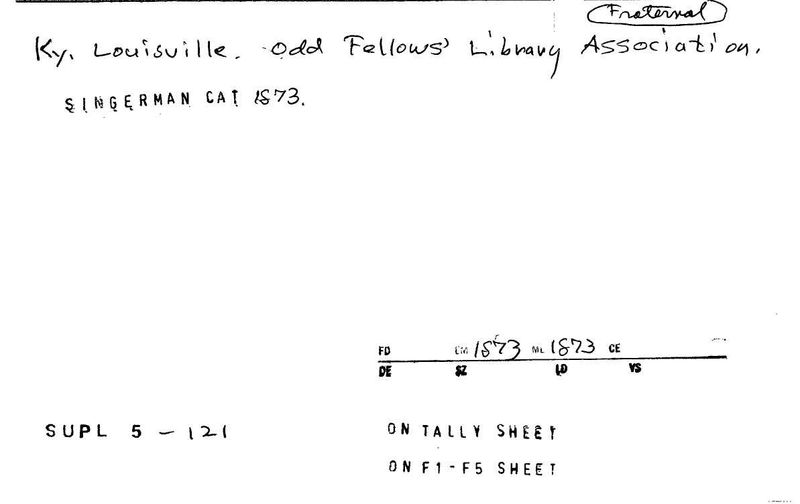 Fraternal
Ky. Louisville. Odd Fellows' Library Association.
SINGERMAN CAT 1873.
FD EM 1873 ML 1873 CE
DE SZ LD VS
SUPL 5 - 121
ON TALLY SHEET
ON F1-F5 SHEET